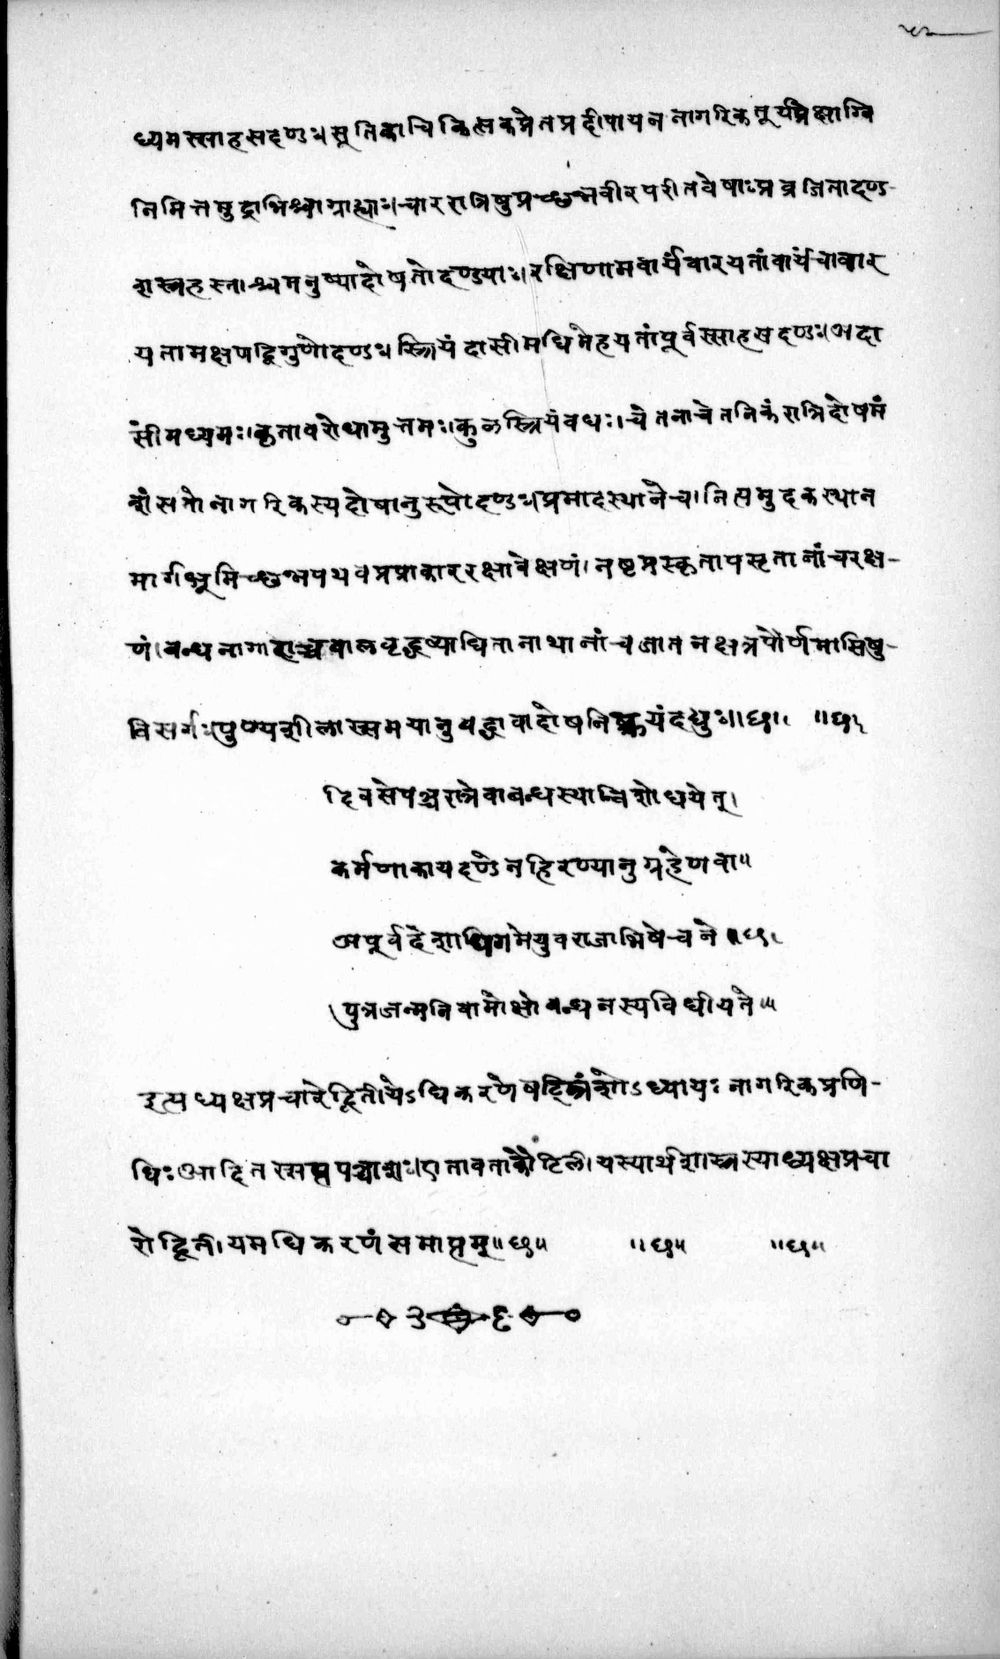 ध्यमस्साहसदण्डः। सूतिकाचिकित्सकप्रेतप्रदीपायननागरिकतूर्यप्रेक्षाग्नि
निमित्तमुद्राभिश्चाग्राह्याः। चाररात्रिषुप्रच्छन्नवीरपरीतवेषाःप्रव्रजितादण्ड-
शस्त्रहस्ताश्चमनुष्यादोषतोदण्ड्याः। रक्षिणामवार्यंवारयतांवार्यंचावार
यतामक्षणद्विगुणोदण्डः। स्त्रियंदासीमधिमेहयतांपूर्वस्साहसदण्डः। अदा
सींमध्यमः। कृतावरोधामुत्तमः। कुलस्त्रियंवधः। चेतनाचेतनिकंरात्रिदोषमं
शंसतोनागरिकस्यदोषानुरूपोदण्डः। प्रमादस्थानेच। नित्यमुदकस्थान
मार्गभूमिच्छन्नपथवप्रप्राकाररक्षावेक्षणं। नष्टप्रस्कृतापसृतानांचरक्ष-
णं। बन्धनागाराच्चबालवृद्धव्याधितानाथानांचजातनक्षत्रपौर्णमासिषु-
विसर्गः। पुण्यशीलास्समयानुबद्धावादोषनिष्क्रयंदद्युः॥ ॥छ॥ ॥छ॥
दिवसेपञ्चरात्रेवाबन्धस्थान्विशोधयेत्।
कर्मणाकायदण्डेनहिरण्यानुग्रहेणवा॥
अपूर्वदेशाधिगमेयुवराजाभिषेचने॥छ॥
पुत्रजन्मनिवामोक्षोबन्धनस्यविधीयते॥
इत्यध्यक्षप्रचारेद्वितीयेऽधिकरणेषट्त्रिंशोऽध्यायः नागरिकप्रणि-
धिः आदितस्सप्तपञ्चाशः। एतावताकौटिलीयस्यार्थशास्त्रस्याध्यक्षप्रचा
रोद्वितीयमधिकरणंसमाप्तम्॥छ॥ ॥छ॥ ॥छ॥